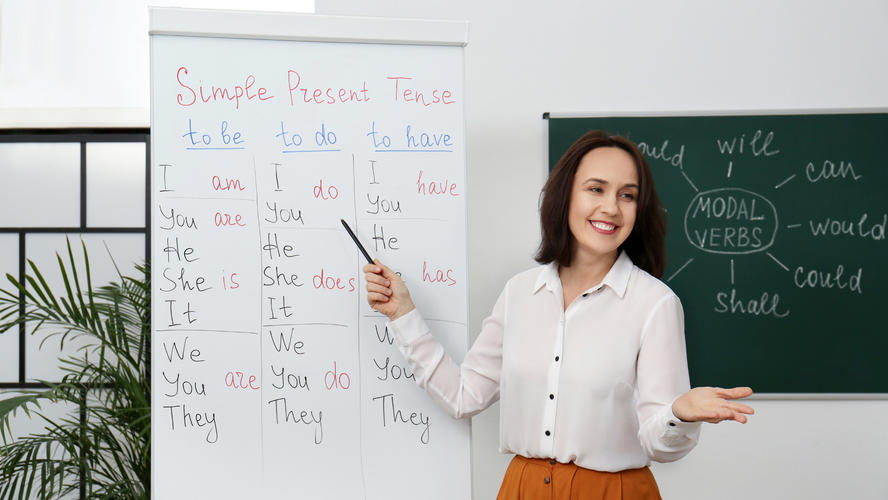 Simple Present Tense
to be
I am
You are
He
She is
It
We
You are
They
to do
I do
You
He
She does
It
We
You do
They
to have
I have
You
He
has
You
They
will
can
MODAL
VERBS
would
could
shall